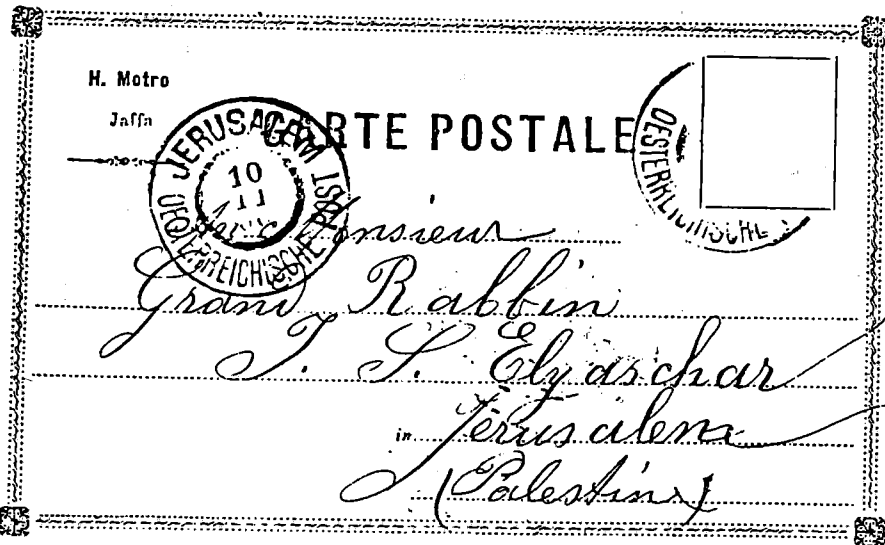 H. Motro
Jaffa
CARTE POSTALE
JERUSALEM
10
11
OESTERREICHISCHE POST
OESTERREICHISCHE
Monsieur
Grand Rabbin
J. S. Elyaschar
in Jérusalem
(Palestine)